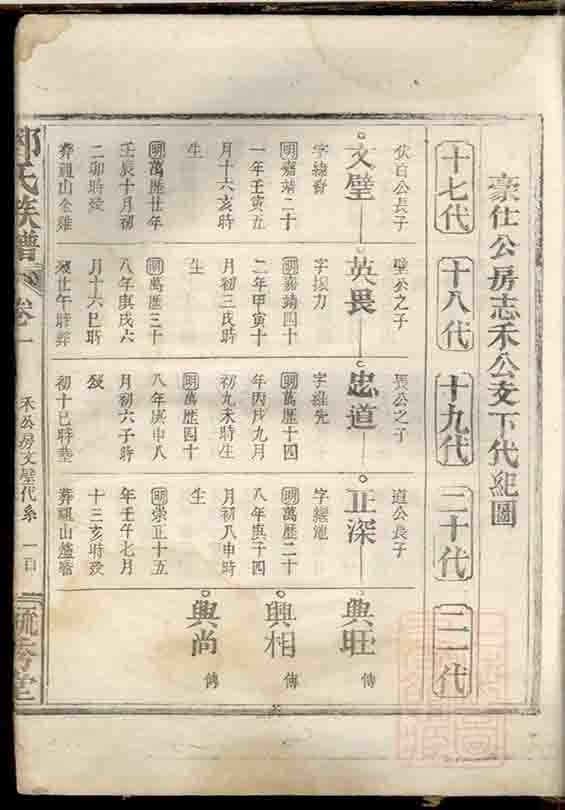 豪仕公房志禾公支下代紀圖
十七代
十八代
十九代
二十代
二一代
伏百公長子
文璧
字緯
明嘉靖二十
一年壬寅五
月十六亥時
生
明萬歷廿年
壬辰十月初
二卯時歿
葬祖山金雞
璧公之子
英畏
字振力
明嘉靖四十
二年甲寅十
月初三戌時
生
明萬歷三十
八年庚戌六
月十六巳時
歿廿午時葬
畏公之子
忠道
字維先
明萬歷十四
年丙戌九月
初九未時生
明萬歷四十
八年庚申八
月初六子時
歿
初十巳時塟
道公長子
正深
字繼池
明萬歷二十
八年庚子四
月初八申時
生
明崇正十五
年壬午七月
十三亥時歿
葬祖山爐
興旺 傳
興相 傳
興尚 傳
氏族譜
卷一
禾公房文璧代系
一百